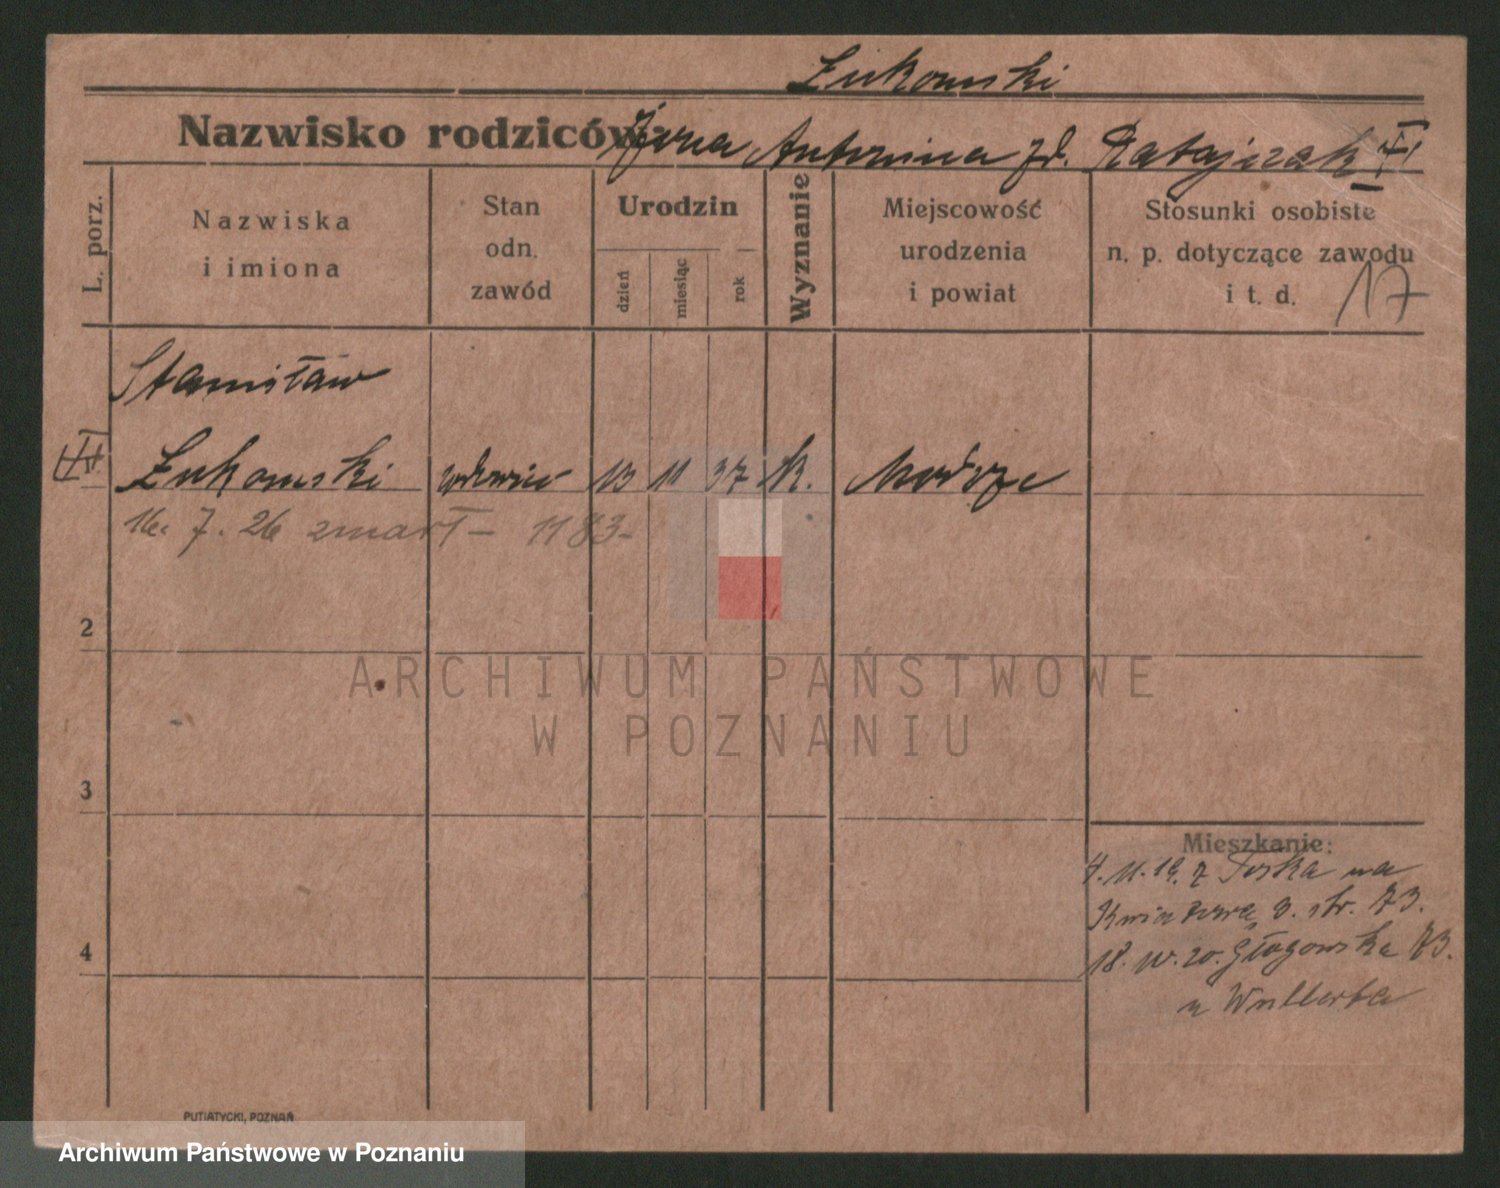 Żukowski
Nazwisko rodziców:
Żona Antonina zd. Ratajczak VI
L. porz.
Nazwiska
i imiona
Stan
odn.
zawód
Urodzin
dzień
miesiąc
rok
Wyznanie
Miejscowość
urodzenia
i powiat
Stosunki osobiste
n. p. dotyczące zawodu
i t. d.
17
Stanisław
Żukowski wdowiec 13 11 37 k. Modrze
16. 7. 26 zmarł - 1183-
2
3
4
Mieszkanie:
4. 11. 19. z Toska na
18. 10. 20. Głogowska 73.
u Wollerta
PUTIATYCKI, POZNAŃ
ARCHIWUM PAŃSTWOWE
W POZNANIU
Archiwum Państwowe w Poznaniu